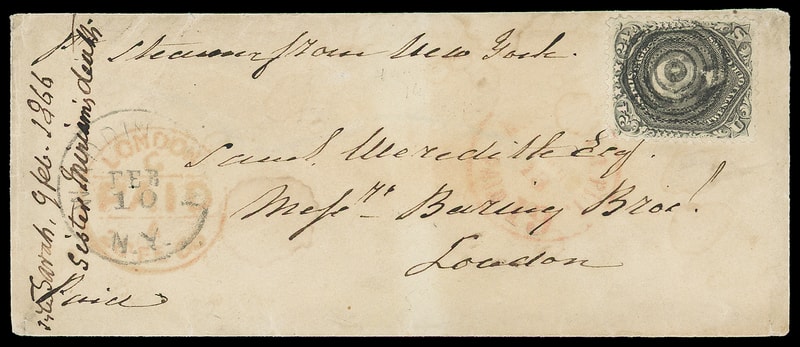 pr steamer from New York.
Saml. Meredith Esq.
Messrs. Baring Bros.
London
Paid
Sarah, 9 Feb. 1866
Sister Miriam's death
LONDON
PAID
FEB
10
N.Y.